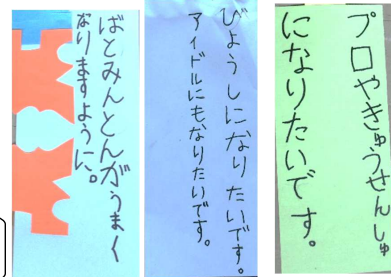 プロやきゅうせんしゅ
になりたいです。
びようしになりたいです。
アイドルにもなりたいです。
ばとみんとんがうまく
なりますように。